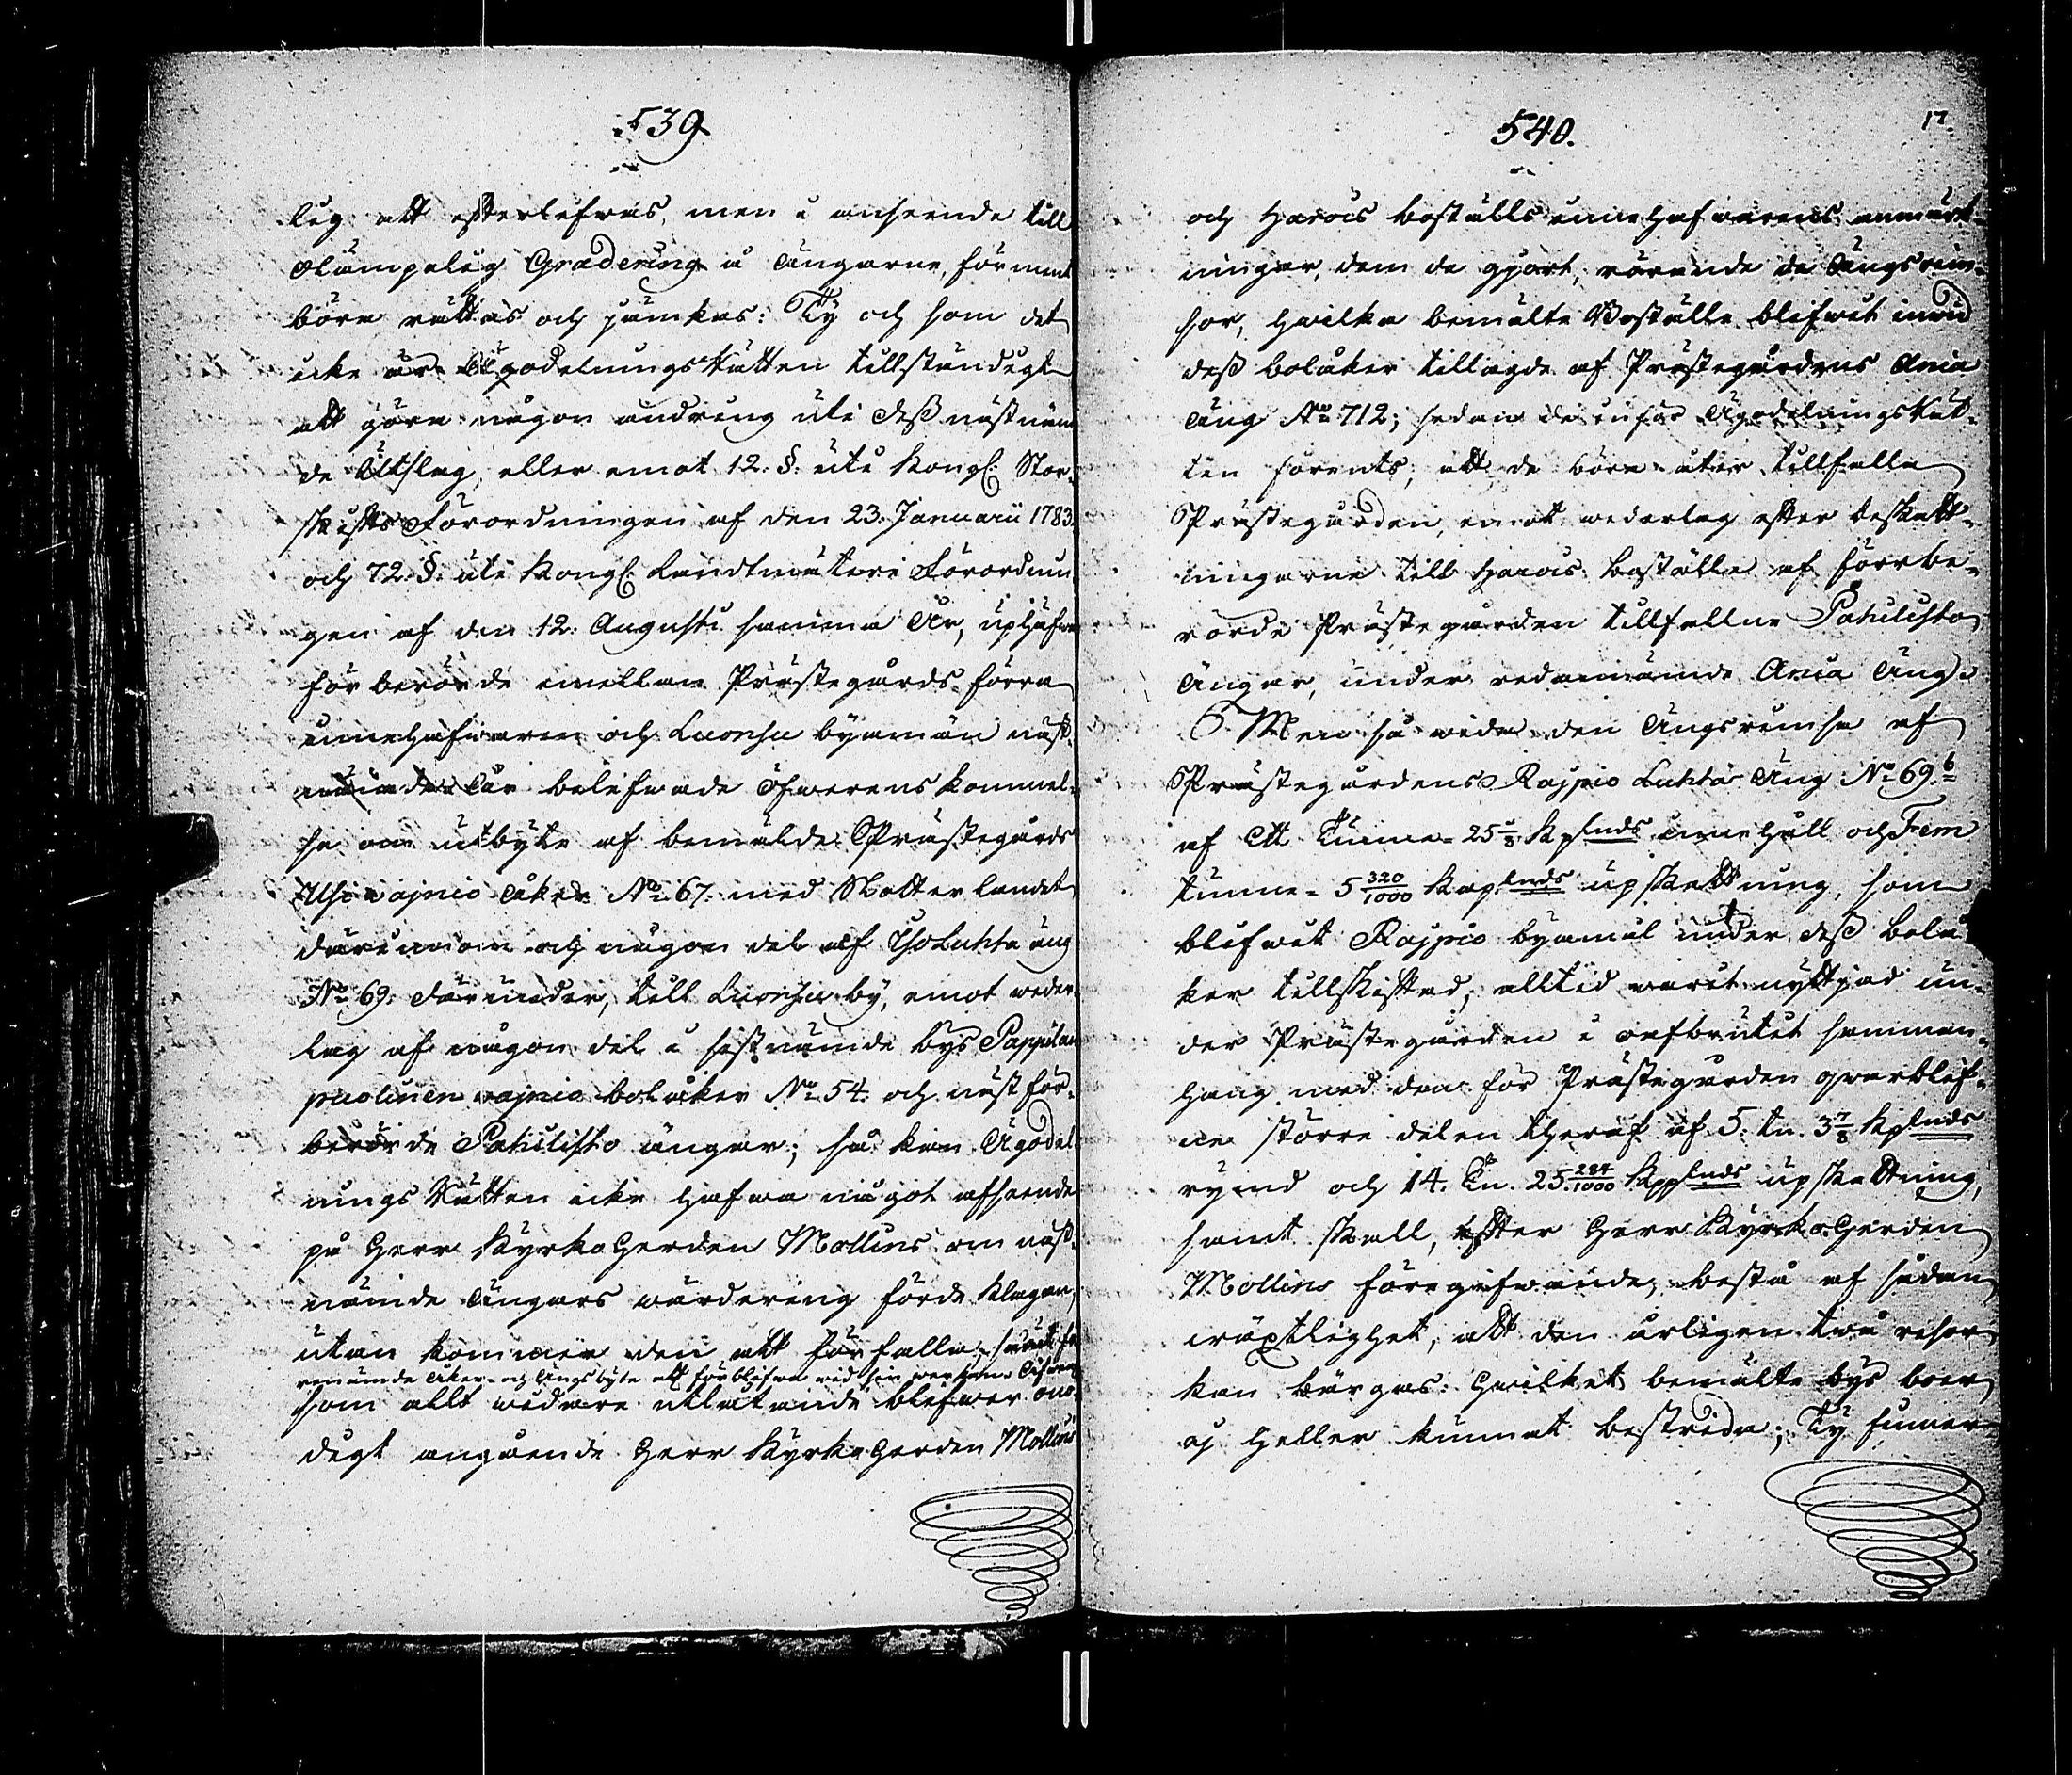 539.
lig att efterlefwas, men i anseende till
olämpelig Gradering å ängarne, förment
böra rättas och jämkas: Ty och som det
icke är ÄgodelningsRätten tillständigt
att göra någon ändring uti dess nästnäm
de Utslag, eller emot 12. §. uti Kongl. Stor-
skiftsFörordningen af den 23. Januarii 1783.
och 72. §. uti Kongl. Landtmäteri Förordnin
gen af den 12. Augusti samma År, uphäfwa
förberörde emellan Prästegårds förra
innehafwaren och Luonsu byamän näst-
nämde År belefwade öfwerenskommel-
se om utbyte af bemälde Prästegårds
wajnio åker No 67. med Matterlandet
därinnom och någon del af IsoLuhta äng
No 69. därunder, till Luonsu by, emot weder-
lag af någon del i sistnämde bys Pappilan
puolinen wajnio bolåker No 54. och nästför-
berörde Patulisto ängar; så kan Ägodel
ningsRätten icke hafwa något afseende
på Herr Kyrkoherden Mollins om näst-
nämde ängars wärdering förde klagan,
utan kommer den att förfalla, samt för
enämde åker- och ängsbyte att förblifwa wid sin
som allt widare utlåtande blefwer onö-
digt angående Herr Kyrkoherden Mollins
540.
17.
och Harois boställs innehafwarens anmärk-
ningar, dem de gjort, rörande de ängsrem-
sor, hwilka bemälte Boställe blifwit inwid
dess bolåker tillagde af Prästegårdens Ania
äng No 712; sedan de inför ÄgodelningsRät-
ten förents, att de böra åter tillfalla
Prästegården, emot wederlag efter beskatt-
ningarne till Harois boställe af förrbe-
rörde Prästegården tillfallne Patulisto
ängar, under redannämde Ania äng.
Men så wida den ängsremsa af
Prästegårdens Rajpio Luhta äng No 69. b
af Ett Tunne- 25 5/8 Kplnds innehåll och Fem
tunne- 5 320/1000 Kaplnds upskattning, som
blifwit Rajpio byamål under dess bolå
ker tillskiftad, alltid warit nyttjad un-
der Prästegården i oafbrutit samman-
hang med den för Prästegården qwarblef-
ne större delen theraf af 5. tn. 3 7/8 Kplnds
rymd och 14. Tn. 25 284/1000 Kpplnds upskattning,
samt skall, efter Herr Kyrkoherden
Mollins föregifwande, bestå af sådan
wäxtlighet, att den årligen twå resor
kan bärgas: hwilket bemälte bys boer
ej heller kunnat bestrida; Ty finner